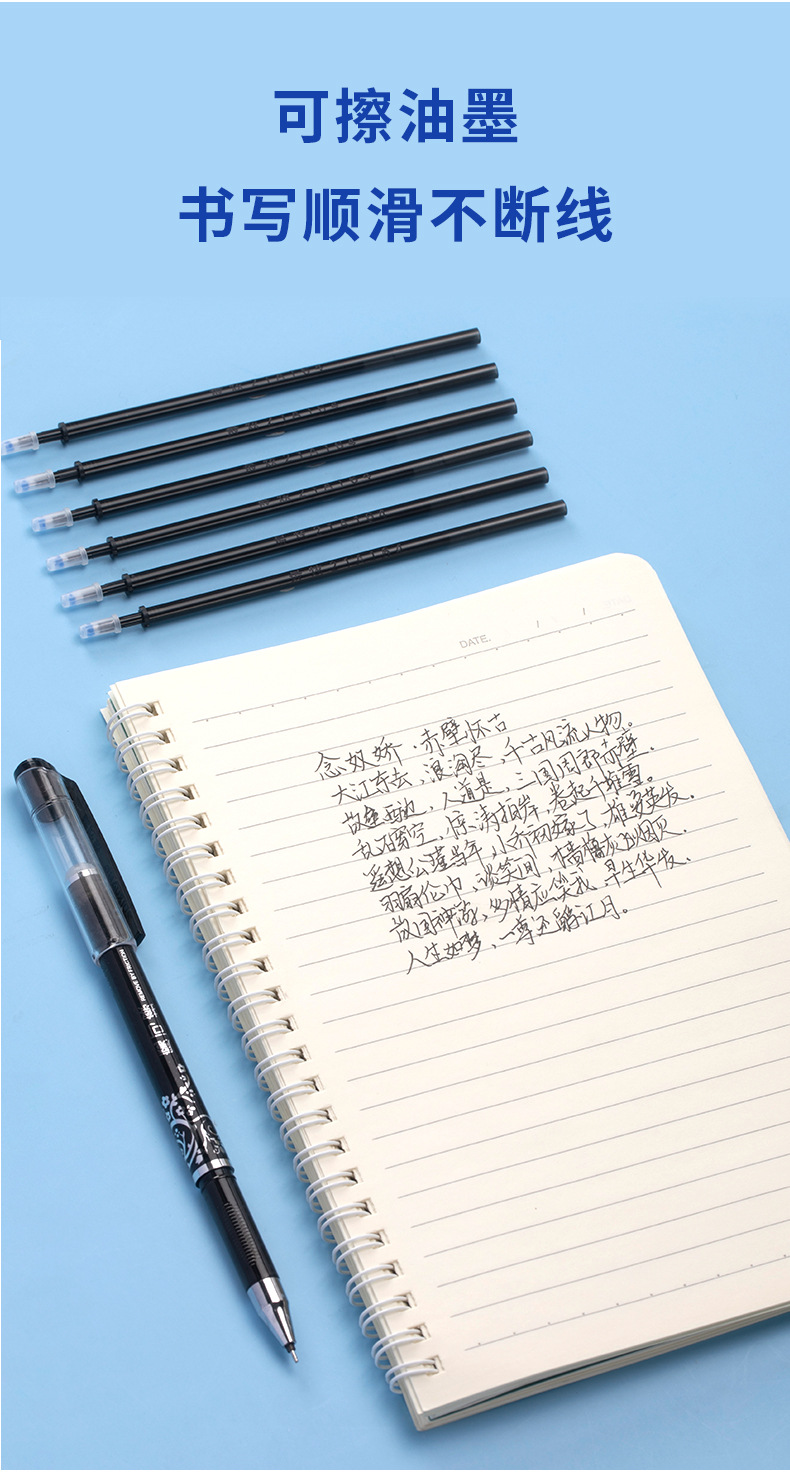 可擦油墨
书写顺滑不断线
DATE.
念奴娇·赤壁怀古
大江东去,浪淘尽,千古风流人物。
故垒西边,人道是,三国周郎赤壁.
乱石穿空,惊涛拍岸,卷起千堆雪。
遥想公瑾当年,小乔初嫁了,雄姿英发.
羽扇纶巾,谈笑间,樯橹灰飞烟灭.
故国神游,多情应笑我,早生华发.
人生如梦,一尊还酹江月。
REMOVE BY FRICTION